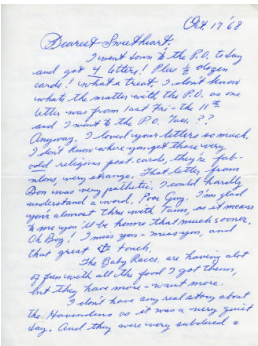 Oct. 17 '68
Dearest Sweetheart.
I went down to the P.O. today
and got 4 letters! Plus ½ dozen
cards! what a treat, I don't know
whats the matter with the P.O. as one
letter was from last Fri - the 11th
and I went to the P.O. Tues. ??
Anyway, I loved your letters so much,
I don't know where you get those very
old religious post cards, they're fab-
ulous, very strange. That letter from
Don was very pathetic, I could hardly
understand a word, Poor Guy. I'm glad
you're almost thru with as it means
to me you'll be home that much sooner.
Oh Boy! I miss you - miss you, and
that great touch.
The Baby Races are having alot
of fun with all the food I got them,
but they have more - want more.
I don't have any real story about
the as it was a very quiet
day. And they were very subdued &